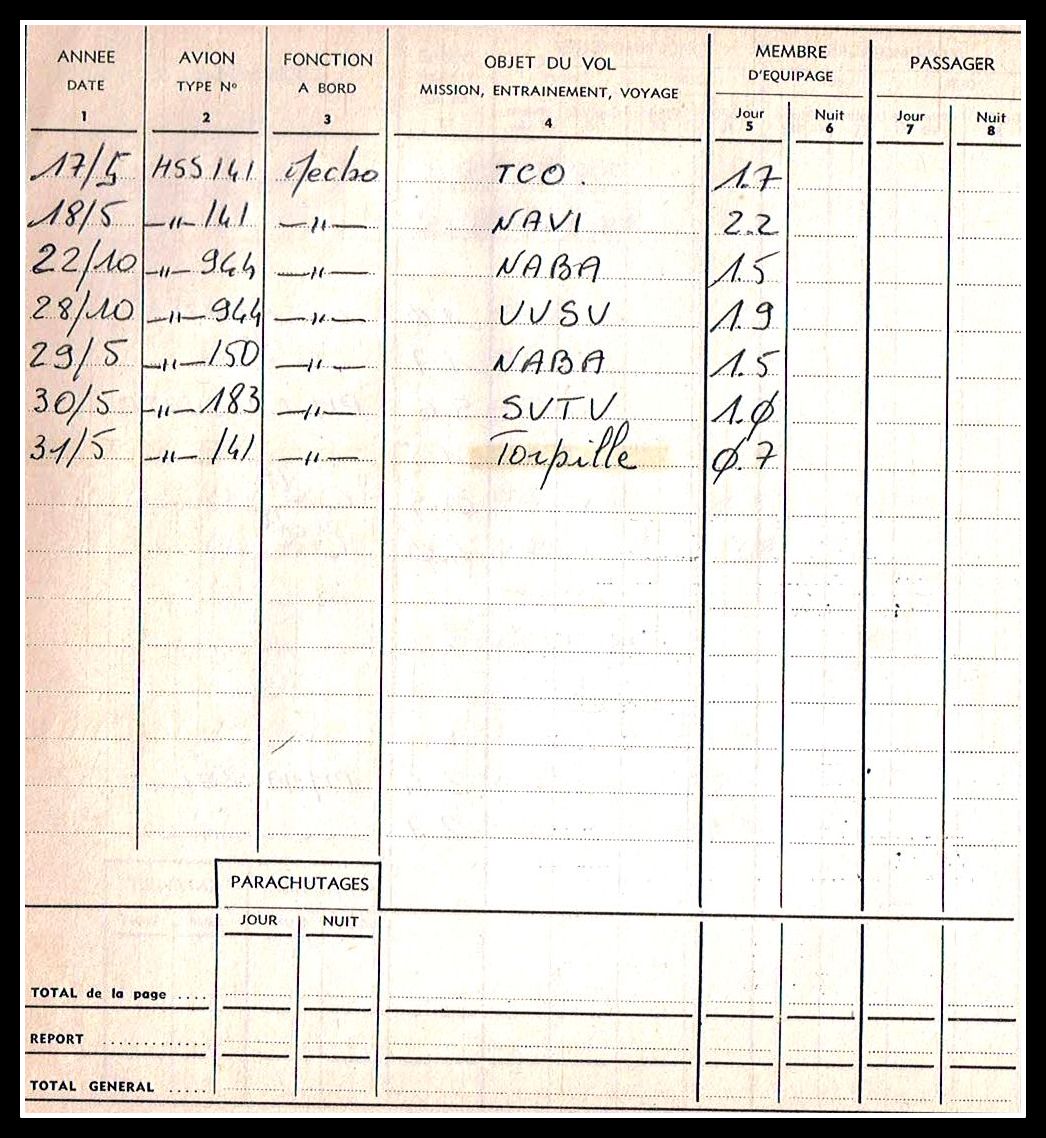 ANNEE AVION FONCTION OBJET DU VOL MEMBRE PASSAGER
DATE TYPE Nº A BORD MISSION, ENTRAINEMENT, VOYAGE D'EQUIPAGE
Jour Nuit Jour Nuit
1 2 3 4 5 6 7 8
17/5 HSS 141 Mecbo TCO. 1.7
18/5 —"— 141 —"— NAVI 2.2
22/10 —"— 944 —"— NABA 1.5
28/10 —"— 944 —"— VVSV 1.9
29/5 —"— 150 —"— NABA 1.5
30/5 —"— 183 —"— SVTV 1.Ø
31/5 —"— 141 —"— Torpille Ø.7
PARACHUTAGES
JOUR NUIT
TOTAL de la page ....
REPORT ............
TOTAL GENERAL .....